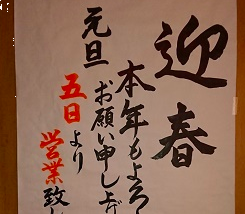 迎春
本年もよろし
お願い申し上げ
元旦
五日より
営業致し